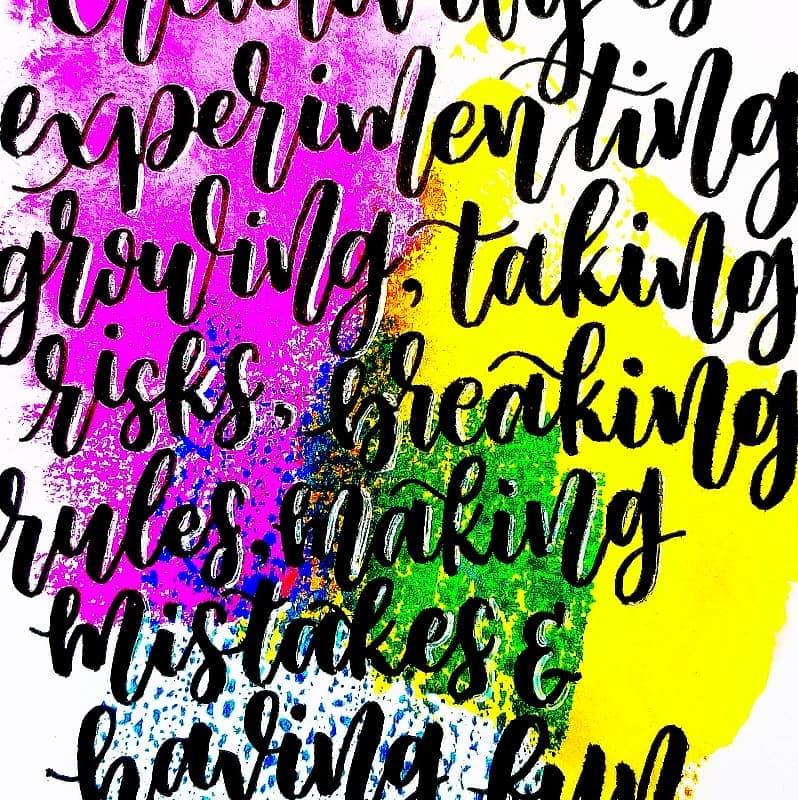 Creativity is
experimenting
growing, taking
risks, breaking
rules, making
mistakes &
having fun